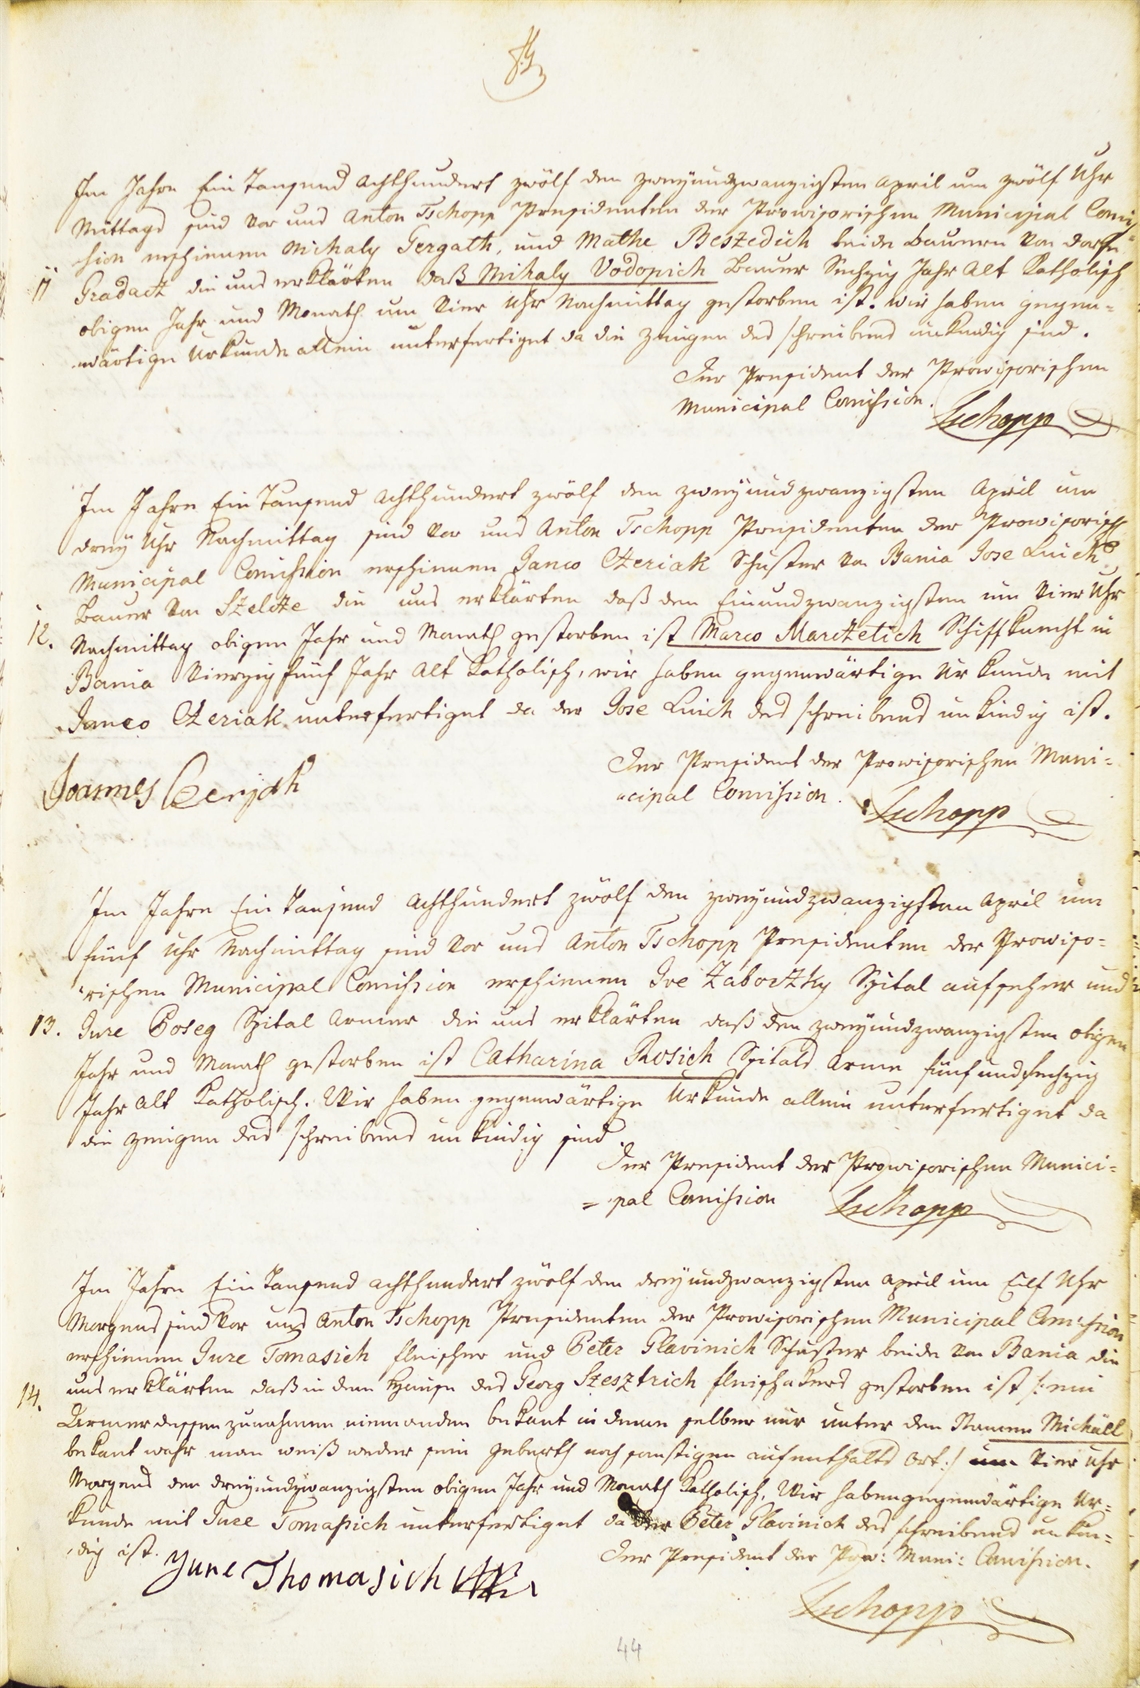 Im Jahre Ein Tausend Achthundert zwölf den zweyundzwanzigsten April um zwölf Uhr
Mittags sind vor uns Anton Tschopp Presidenten der Provisorischen Municipal Comis=
sion erschienen Mihaly Gergath, und Mathe Beszedich beide Bauern von Dorfe
11 Gradacz die uns erklärten daß Mihaly Vodopich Bauer Sechzig Jahr Alt Katholisch
obigen Jahr und Monath um Vier Uhr Nachmittag gestorben ist. Wir haben gegen=
wärtige Urkunde allein unterfertiget da die Zeugen des schreibens unkundig sind.
Der President der Provisorischen
Municipal Comission. Tschopp
Im Jahre Ein Tausend Achthundert zwölf den zweyundzwanzigsten April um
drey Uhr Nachmittag sind vor uns Anton Tschopp Presidenten der Provisorisch
Municipal Comission erschienen Janco Czeriak Schuster von Bania Jose Luich
Bauer von Szelcze die uns erklärten daß den Einundzwanzigsten um Vier Uhr
12. Nachmittag obigen Jahr und Monath gestorben ist Marco Marczetich Schiffknecht in
Bania Vierzig fünf Jahr Alt Katholisch, wir haben gegenwärtige Urkunde mit
Janco Czeriak unterfertiget da der Jose Luich des schreibens unkundig ist.
Der President der Provisorischen Muni=
cipal Comission. Tschopp
Joannes Cerijak
Im Jahre Ein Tausend Achthundert zwölf den zweyundzwanzigsten April um
fünf Uhr Nachmittag sind vor uns Anton Tschopp Presidenten der Proviso=
rischen Municipal Comission erschienen Ive Zaborzky Spital aufseher und
13. Jure Poseg Spital Armer die uns erklärten daß den zweyundzwanzigsten obigen
Jahr und Monath gestorben ist Catharina Rosich Spitals Arme fünfundsechzig
Jahr Alt Katholisch. Wir haben gegenwärtige Urkunde allein unterfertiget da
die zeugen des schreibens unkundig sind.
Der President der Provisorischen Munici=
=pal Comission Tschopp
Im Jahre Ein Tausend achthundert zwölf den dreyundzwanzigsten April um Eilf Uhr
Morgens sind vor uns Anton Tschopp Presidenten der Provisorischen Municipal Comission
erschienen Jure Tomasich fleischer und Peter Glavinich Schuster beide von Bania die
14. uns erklärten daß in dem Hause des Georg Szesztrich fleischakers gestorben ist /: ein
Armer dessen zunahmen niemanden bekant in deme selber nur unter den Namen Michäll
bekant wahr man weiß weder sein geburth noch sonstigen aufenthalts Ort :/ um Vier Uhr
Morgens den dreyundzwanzigsten obigen Jahr und Monath Katholisch. Wir haben gegenwärtige Ur=
kunde mit Jure Tomasich unterfertiget da der Peter Glavinich des schreibens unkun=
dig ist.
Der President der Prov: Muni: Comission.
Jure Thomasich
Tschopp
44